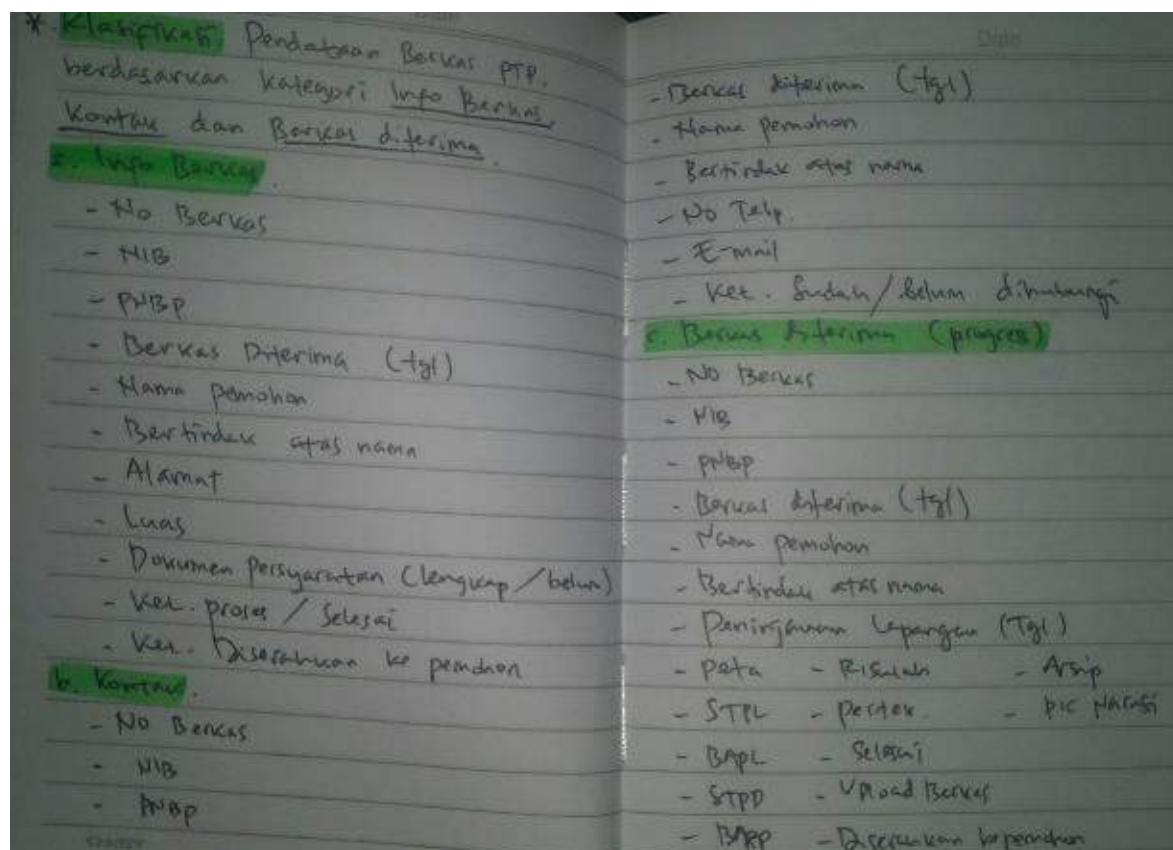 * Klasifikasi Pendataan Berkas PTP.
berdasarkan kategori Info Berkas,
Kontak dan Berkas diterima.
a. Info Berkas.
- No Berkas
- NIB
- PNBP
- Berkas Diterima (tgl)
- Nama pemohon
- Bertindak atas nama
- Alamat
- Luas
- Dokumen persyaratan (lengkap/belum)
- Ket. proses / Selesai
- Ket. Diserahkan ke pemohon
b. Kontak.
- No Berkas
- NIB
- PNBP
- Berkas diterima (tgl)
- Nama pemohon
- Bertindak atas nama
- No Telp.
- E-mail
- Ket. Sudah/Belum dihubungi
c. Berkas diterima (progres)
- No Berkas
- NIB
- PNBP
- Berkas diterima (tgl)
- Nama pemohon
- Bertindak atas nama
- Peninjauan Lapangan (Tgl)
- Peta - Risalah - Arsip
- STPL - Pertek. - PIC Narasi
- BAPL - Selesai
- STPP - Upload Berkas
- BAPP - Diserahkan ke pemohon